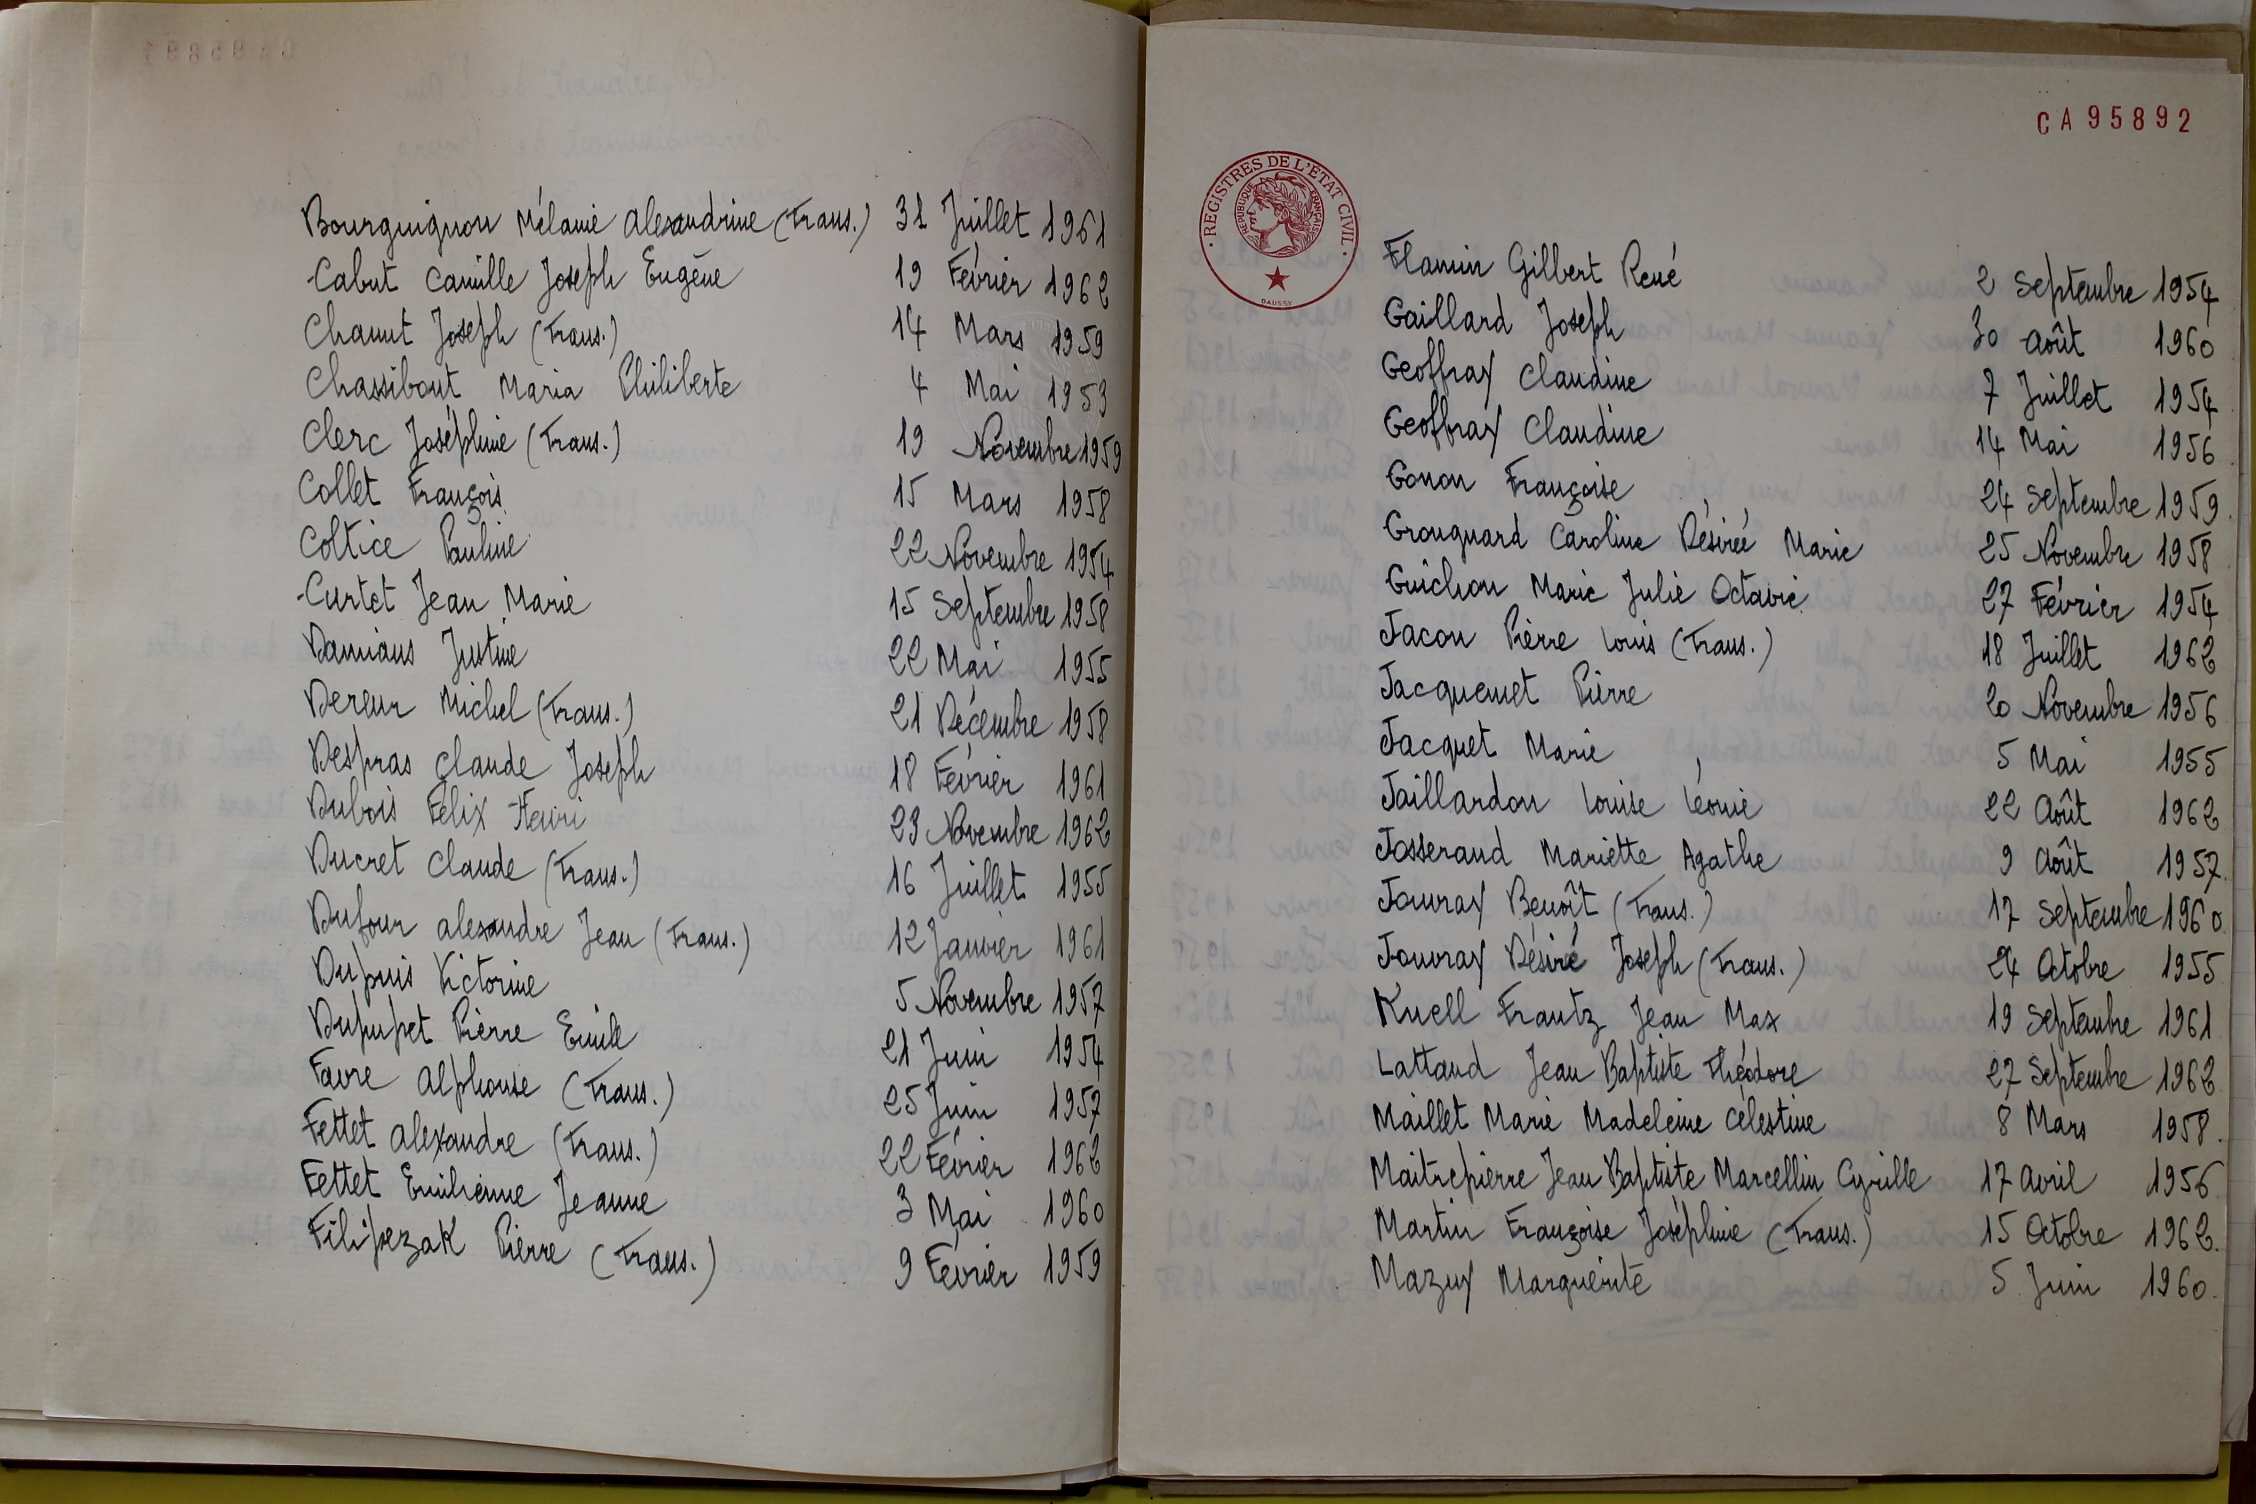 Bourguignon Mélanie Alexandrine (Trans.) 31 Juillet 1961
Cabut Camille Joseph Eugène 19 Février 1962
Chanut Joseph (Trans.) 14 Mars 1959
Chassibout Maria Philiberte 4 Mai 1953
Clerc Joséphine (Trans.) 19 Novembre 1959
Collet François 15 Mars 1958
Coltice Pauline 22 Novembre 1954
Curtet Jean Marie 15 Septembre 1958
Damians Justine 22 Mai 1955
Dereur Michel (Trans.) 21 Décembre 1958
Despras Claude Joseph 18 Février 1961
Dubois Félix Henri 23 Novembre 1962
Ducret Claude (Trans.) 16 Juillet 1955
Dufour Alexandre Jean (Trans.) 12 Janvier 1961
Dupuis Victorine 5 Novembre 1957
Dupupet Pierre Emile 21 Juin 1954
Favre Alphonse (Trans.) 25 Juin 1957
Fettet Alexandre (Trans.) 22 Février 1962
Fettet Emilienne Jeanne 3 Mai 1960
Filipezak Pierre (Trans.) 9 Février 1959
CA95892
REGISTRES DE L'ETAT CIVIL
REPUBLIQUE FRANÇAISE
DAUSSY
Flamin Gilbert René 2 Septembre 1954
Gaillard Joseph 30 Août 1960
Geoffray Claudine 7 Juillet 1954
Geoffray Claudine 14 Mai 1956
Gonon Françoise 24 Septembre 1959
Grouquard Caroline Désirée Marie 25 Novembre 1958
Guichon Marie Julie Octavie 27 Février 1954
Jacon Pierre Louis (Trans.) 18 Juillet 1962
Jacquemet Pierre 20 Novembre 1956
Jacquet Marie 5 Mai 1955
Jaillardon Louise Léonie 22 Août 1962
Josserand Mariette Agathe 9 Août 1957
Jouvray Benoît (Trans.) 17 Septembre 1960
Jouvray Désiré Joseph (Trans.) 24 Octobre 1955
Knell Frantz Jean Max 19 Septembre 1961
Lattaud Jean Baptiste Théodore 27 Septembre 1962
Maillet Marie Madeleine Célestine 8 Mars 1958.
Maitrepierre Jean Baptiste Marcellin Cyrille 17 Avril 1956
Martin Françoise Joséphine (Trans.) 15 Octobre 1962.
Mazuy Marguerite 5 Juin 1960.